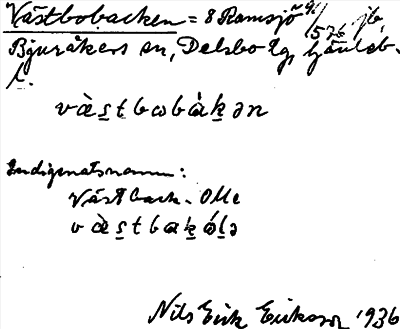 Västbobacken = 8 Ramsjö 9/1 576 jb.
Bjuråkers sn, Delsbo tg, Gävleb.
l.
vàs̱tbωbàḵən
Indigenatsnamn:
Västback-Olle
vàs̱tbaḵóḻə
Nils Erik Eriksson 1936